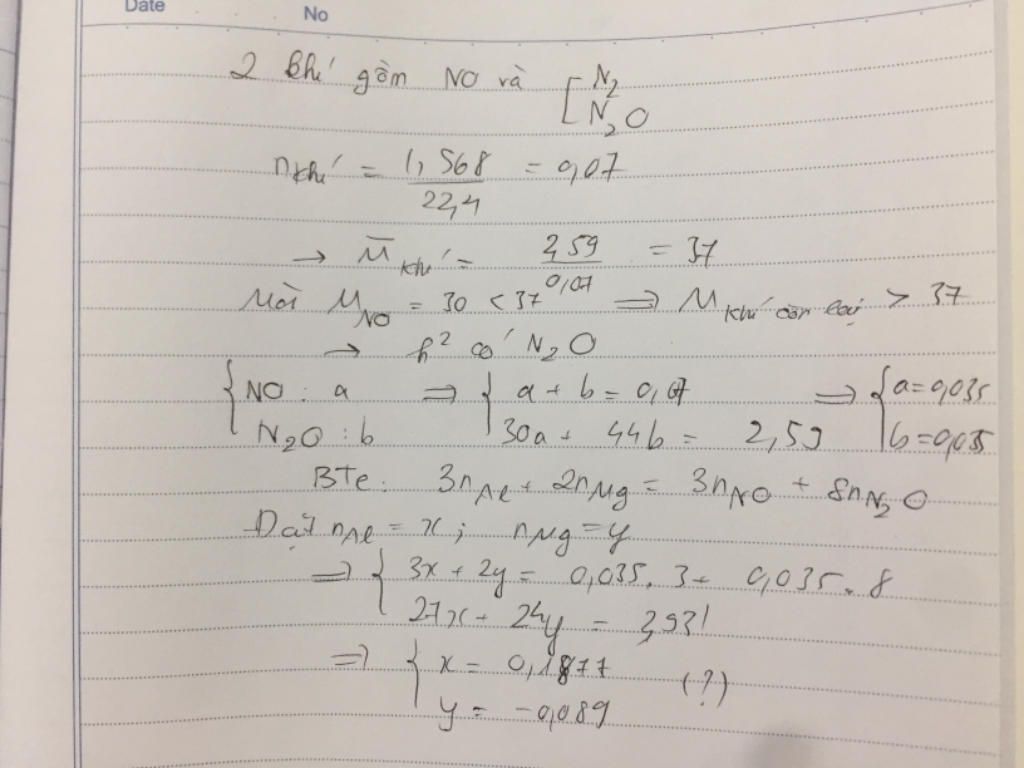 Date No
2 khí gồm NO và [ N2
N2O
nkhí = 1,568 / 22,4 = 0,07
→ M̄ khí = 2,59 / 0,07 = 37
Mà MNO = 30 < 37 ⟹ M khí còn lại > 37
→ h² có N2O
{ NO : a ⟹ { a + b = 0,07 ⟹ { a = 0,035
N2O : b 30a + 44b = 2,59 b = 0,035
BTe: 3nAl + 2nMg = 3nNO + 8nN2O
Đặt nAl = x ; nMg = y
⟹ { 3x + 2y = 0,035.3 + 0,035.8
27x + 24y = 2,931
⟹ { x = 0,1877 (?)
y = -0,089